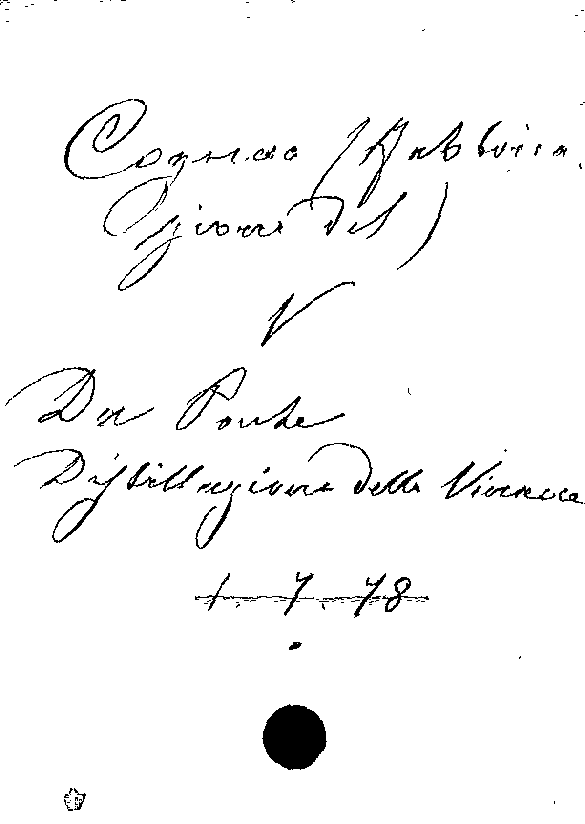 Cognac (Fabbrica-
zione del)
V
Da Ponte
Distillazione delle Vinacce
1. 7. 78